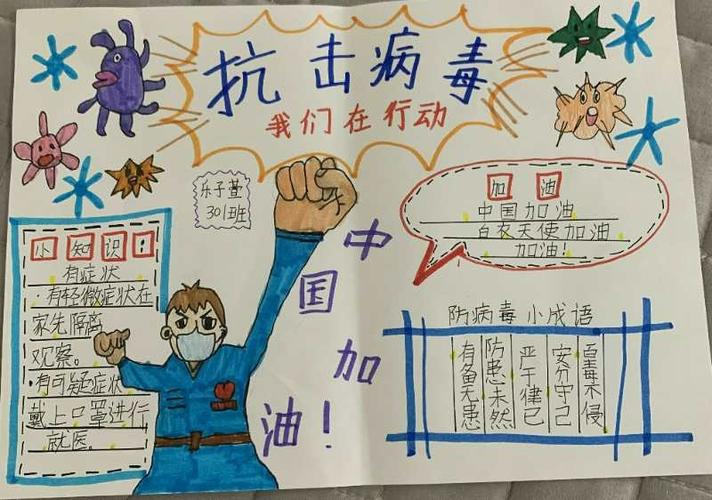 抗击病毒
我们在行动
乐子萱
301班
加油
中国加油
白衣天使加油
加油！
小知识！
有症状
·有轻微症状在
家先隔离
观察。
·有可疑症状
戴上口罩进行
就医。
中国加油！
防病毒小成语
有备无患
防患未然
严于律己
安分守己
百毒不侵